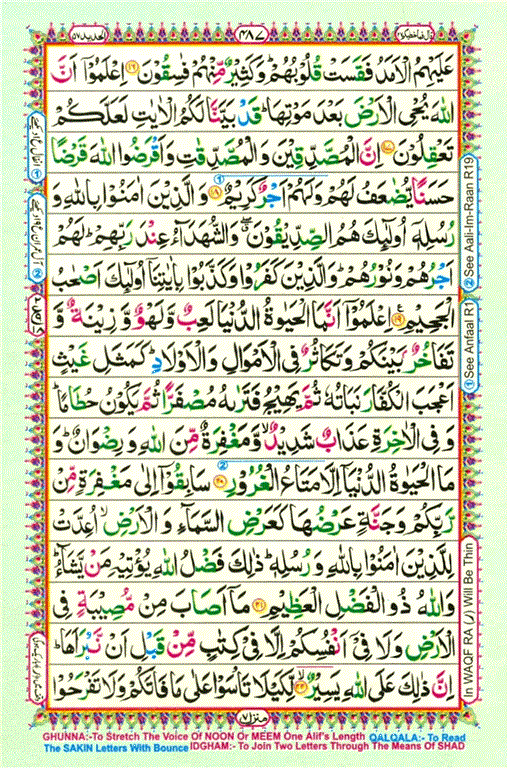 قال فما خطبکم ٢٧
٤٨٧
الحديد ٥٧
عَلَيْهِمُ الْاَمَدُ فَقَسَتْ قُلُوْبُهُمْ ؕ وَكَثِيْرٌ مِّنْهُمْ فٰسِقُوْنَ ﴿۱۶﴾ اِعْلَمُوْۤا اَنَّ
اللّٰهَ يُحْيِ الْاَرْضَ بَعْدَ مَوْتِهَا ؕ قَدْ بَيَّنَّا لَكُمُ الْاٰيٰتِ لَعَلَّكُمْ
تَعْقِلُوْنَ ﴿۱۷﴾ اِنَّ الْمُصَّدِّقِيْنَ وَ الْمُصَّدِّقٰتِ وَاَقْرَضُوا اللّٰهَ قَرْضًا
حَسَنًا يُّضٰعَفُ لَهُمْ وَلَهُمْ اَجْرٌ كَرِيْمٌ ﴿۱۸﴾ وَ الَّذِيْنَ اٰمَنُوْا بِاللّٰهِ وَ
رُسُلِهٖۤ اُولٰٓئِكَ هُمُ الصِّدِّيْقُوْنَ ۖ وَالشُّهَدَآءُ عِنْدَ رَبِّهِمْ ؕ لَهُمْ
اَجْرُهُمْ وَنُوْرُهُمْ ؕ وَالَّذِيْنَ كَفَرُوْا وَكَذَّبُوْا بِاٰيٰتِنَاۤ اُولٰٓئِكَ اَصْحٰبُ
الْجَحِيْمِ ﴿۱۹﴾ اِعْلَمُوْۤا اَنَّمَا الْحَيٰوةُ الدُّنْيَا لَعِبٌ وَّ لَهْوٌ وَّ زِيْنَةٌ وَّ
تَفَاخُرٌۢ بَيْنَكُمْ وَ تَكَاثُرٌ فِي الْاَمْوَالِ وَ الْاَوْلَادِ ؕ كَمَثَلِ غَيْثٍ
اَعْجَبَ الْكُفَّارَ نَبَاتُهٗ ثُمَّ يَهِيْجُ فَتَرٰىهُ مُصْفَرًّا ثُمَّ يَكُوْنُ حُطَامًا ؕ
وَ فِي الْاٰخِرَةِ عَذَابٌ شَدِيْدٌ ۙ وَّ مَغْفِرَةٌ مِّنَ اللّٰهِ وَ رِضْوَانٌ ؕ وَ
مَا الْحَيٰوةُ الدُّنْيَاۤ اِلَّا مَتَاعُ الْغُرُوْرِ ﴿۲۰﴾ سَابِقُوْۤا اِلٰى مَغْفِرَةٍ مِّنْ
رَّبِّكُمْ وَ جَنَّةٍ عَرْضُهَا كَعَرْضِ السَّمَآءِ وَ الْاَرْضِ ۙ اُعِدَّتْ
لِلَّذِيْنَ اٰمَنُوْا بِاللّٰهِ وَ رُسُلِهٖ ؕ ذٰلِكَ فَضْلُ اللّٰهِ يُؤْتِيْهِ مَنْ يَّشَآءُ ؕ
وَ اللّٰهُ ذُو الْفَضْلِ الْعَظِيْمِ ﴿۲۱﴾ مَاۤ اَصَابَ مِنْ مُّصِيْبَةٍ فِي
الْاَرْضِ وَ لَا فِيْۤ اَنْفُسِكُمْ اِلَّا فِيْ كِتٰبٍ مِّنْ قَبْلِ اَنْ نَّبْرَاَهَا ؕ
اِنَّ ذٰلِكَ عَلَى اللّٰهِ يَسِيْرٌ ﴿۲۲﴾ لِّكَيْلَا تَاْسَوْا عَلٰى مَا فَاتَكُمْ وَلَا تَفْرَحُوْا
منزل ٧
② See Aali-Im-Raan R19
① See Anfaal R1
In WAQF RA (ر) Will Be Thin
GHUNNA:-To Stretch The Voice Of NOON Or MEEM One Alif's Length QALQALA:- To Read
The SAKIN Letters With Bounce IDGHAM:- To Join Two Letters Through The Means Of SHAD